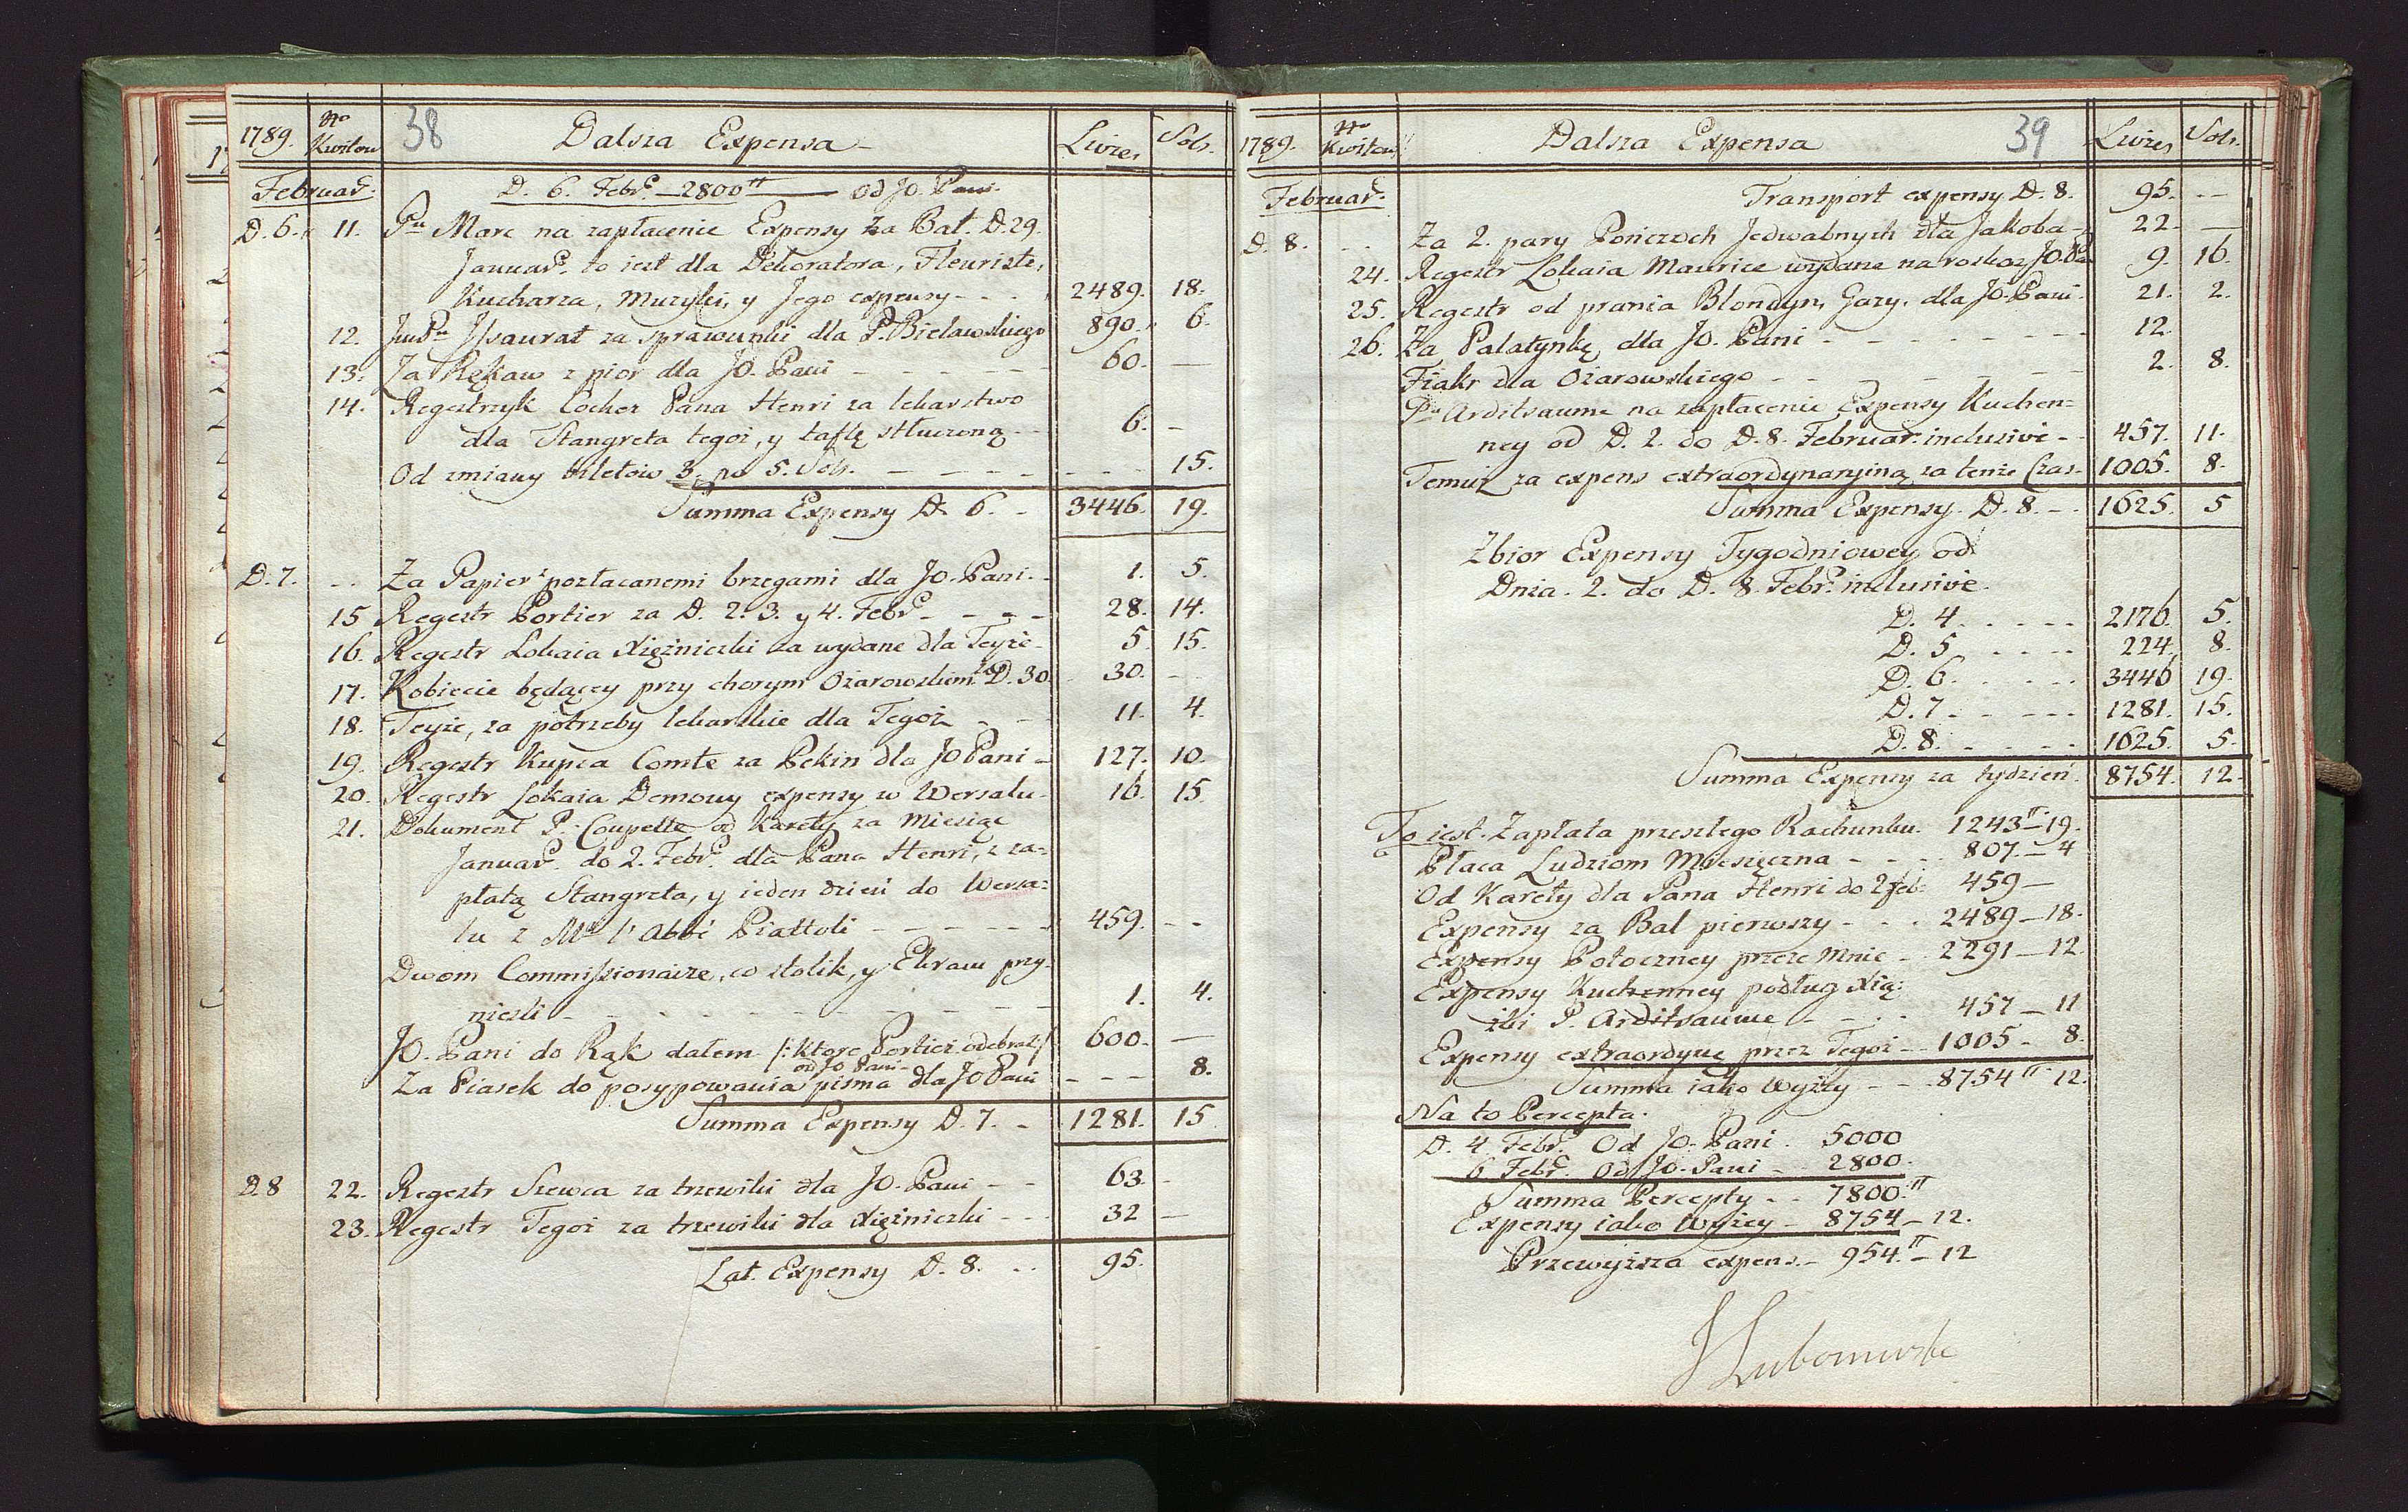 1789. No Kwitow 38 Dalsza Expensa Livres Sols.
Februar. D. 6. Febr. 2800 tt od JO. Pani.
D. 6. 11. Pu Marc na zapłacenie Expensy za Bal. D. 29.
Januar. to iest dla Dekoratora, Fleuriste,
Kucharza, Muzyki, y Jego expensy - - 2489. 18.
12. Issaurat za sprawunki dla P. Bielawskiego 890. 6.
13. Za Rękaw z pior dla JO. Pani - - 60. —
14. Regestrzyk Cocher Pana Henri za lekarstwo
dla Stangreta tegoż, y taflę stłuczoną - - 6. -
Od zmiany biletow 3. po 5. Sols. - - 15.
Summa Expensy D. 6. - 3446. 19.
D. 7. - - Za Papier z pozłacanemi brzegami dla JO. Pani. - 1. 5.
15 Regestr Portier za D. 2. 3. y 4. Febr. - - 28. 14.
16. Regestr Lokaia Xiężniczki za wydane dla Teyże - 5. 15.
17. Kobiecie będącey przy chorym Ożarowskim za D. 30. 30. -
18. Teyże, za potrzeby lekarskie dla Tegoż - - 11. 4.
19. Regestr Kupca Comte za Pekin dla JO Pani - 127. 10.
20. Regestr Lokaia Demowy expensy w Wersalu - 16. 15.
21. Dokument P. Coupette od Karety za Miesiąc
Januar. do 2. Febr. dla Pana Henri, z za=
płatą Stangreta, y ieden dzień do Wersa=
lu z Mr l'Abbé Piattoli - - - 459. - -
Dwom Commissionaire, co stolik, y Ekran przy=
niesli - - - 1. 4.
JO. Pani do Rąk dałem /: ktore Portier odebrał :/ 600. —
od JO Pani -
Za Piasek do posypowania pisma dla JO Pani - - - 8.
Summa Expensy D. 7. - 1281. 15
D. 8 22. Regestr Szewca za trzewiki dla JO. Pani - - 63. -
23. Regestr Tegoż za trzewiki dla Xiężniczki - - 32 —
Lat. Expensy D. 8. - - 95.
1789. No Kwitow Dalsza Expensa 39 Livres Sols.
Februar. Transport expensy D. 8. 95. - -
D. 8. - - Za 2. pary Pończoch Jedwabnych dla Jakoba - 22. —
24. Regestr Lokaia Maurice wydane na rozkaz JO. Pa 9. 16.
25. Regestr od prania Blondyn, Gazy, dla JO. Pani. 21. 2.
26. Za Palatynkę dla JO. Pani - - - 12.
Fiakr dla Ożarowskiego - - - 2. 8.
Pu Arditsaume na zapłacenie Expensy Kuchen=
ney od D. 2. do D. 8. Februar. inclusive - 457. 11.
Temuż za expens extraordynaryiną za tenże Czas - 1005. 8.
Summa Expensy D. 8. - - 1625. 5
Zbior Expensy Tygodniowey od
Dnia. 2. do D. 8. Febr. inclusive.
D. 4. - - 2176. 5.
D. 5 - - 224. 8.
D. 6. - - 3446 19.
D. 7 - - 1281. 15.
D. 8. - - 1625. 5.
Summa Expensy za tydzień. 8754. 12.
To iest. Zapłata przeszłego Rachunku. 1243 tt 19.
Płaca Ludziom Miesięczna - - 807. — 4
Od Karety dla Pana Henri do 2 feb: 459 —
Expensy za Bal pierwszy - - 2489 — 18.
Expensy Potoczney przeze Mnie - 2291 — 12.
Expensy Kuchenney podług Xią:
żki P. Arditsaume - - 457 — 11
Expensy extraordyne przez Tegoż - - 1005 - 8.
Summa iako wyżey - - 8754 tt 12.
Na to Percepta.
D. 4. Febr. Od JO. Pani. 5000
6 Febr. Od JO. Pani - 2800.
Summa Percepty - - 7800. tt
Expensy iako wyżey - 8754 - 12.
Przewyższa expens. - 954. tt - 12
JLubomirska